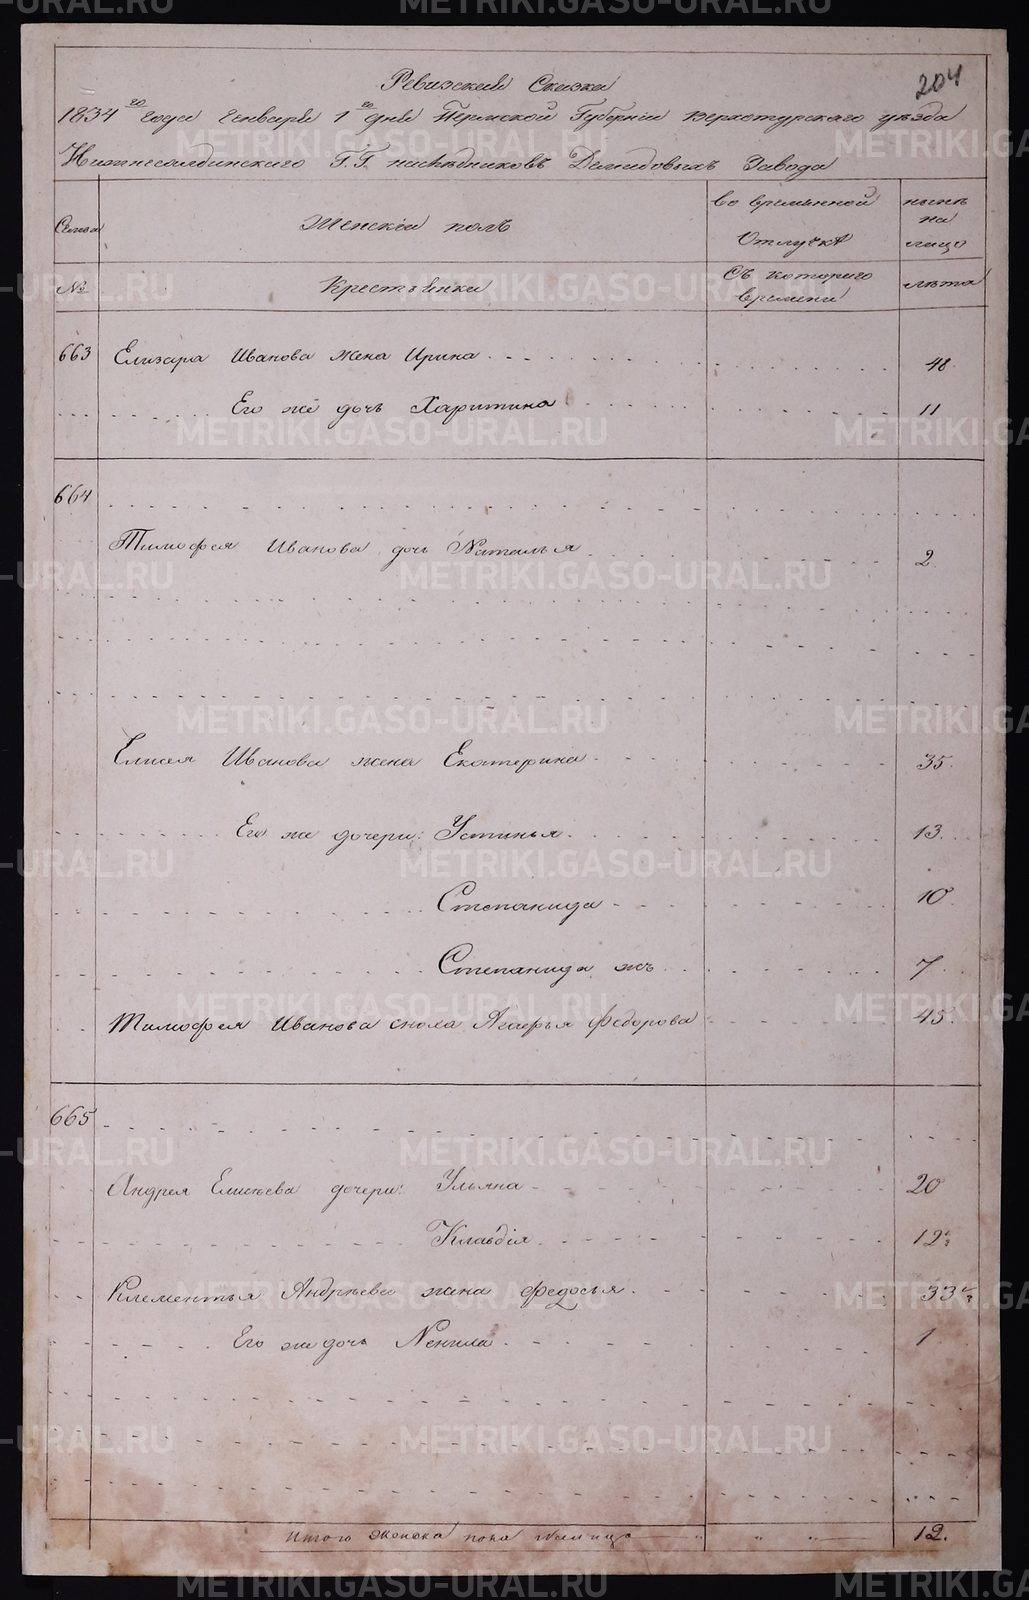 204
Ревизская Сказка
1834го года Генваря 1го дня Пермской Губерніи Верхотурского уѣзда
Нижнесалдинского Г.Г. наслѣдниковъ Демидовыхъ Завода
Семья
Женскій полъ
во временной
Отлучкѣ
нынѣ
на
лицо
№
Крестьянки
Съ которого
времени
лѣта
663 Елизара Иванова жена Ирина 48
Его же дочь Харитина 11
664
Тимофея Иванова дочь Наталья 2
Елисея Иванова жена Екатерина 35
Его же дочери: Устинья 13
Степанида 10
Степанида жъ 7
Тимофея Иванова сноха Агафья Федорова 45
665
Андрея Елисѣева дочери: Ульяна 20
Клавдія 12
Клементья Андрѣева жена Федосья 33
Его же дочь Ненила 1
Итого женска пола налицо 12.
METRIKI.GASO-URAL.RU